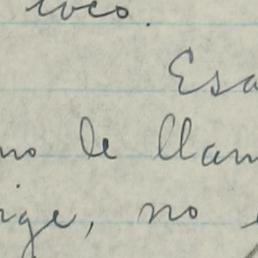 loco.
Esa
no le llam
ige, no